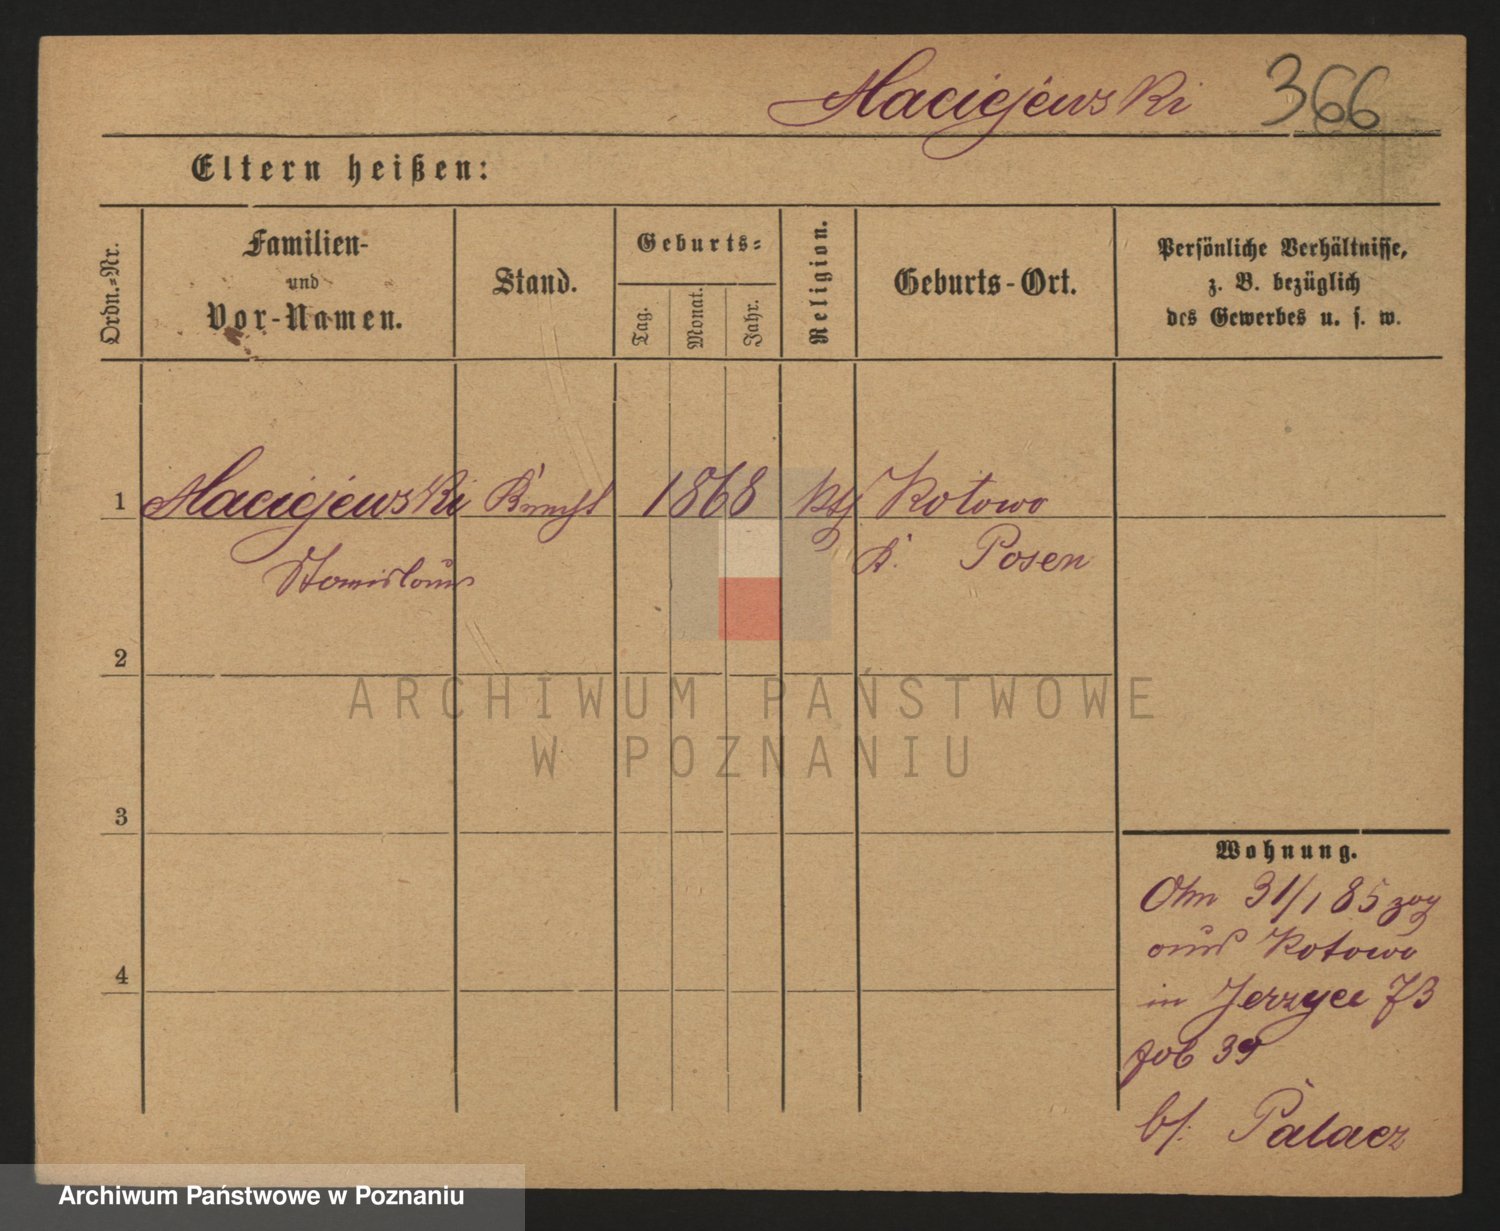 Maciejewski 366
Eltern heißen:
Ordn.-Nr.
Familien-
und
Vor-Namen.
Stand.
Geburts-
Tag.
Monat.
Jahr.
Religion.
Geburts-Ort.
Persönliche Verhältnisse,
z. B. bezüglich
des Gewerbes u. s. w.
1 Maciejewski Knecht 1868 kth Kotowo
Stanislaus K. Posen
2
ARCHIWUM PAŃSTWOWE
W POZNANIU
3
Wohnung.
Am 31/1 85 zog
aus Kotowo
4
in Jerzyce 73
39
bs: Palacz
Archiwum Państwowe w Poznaniu